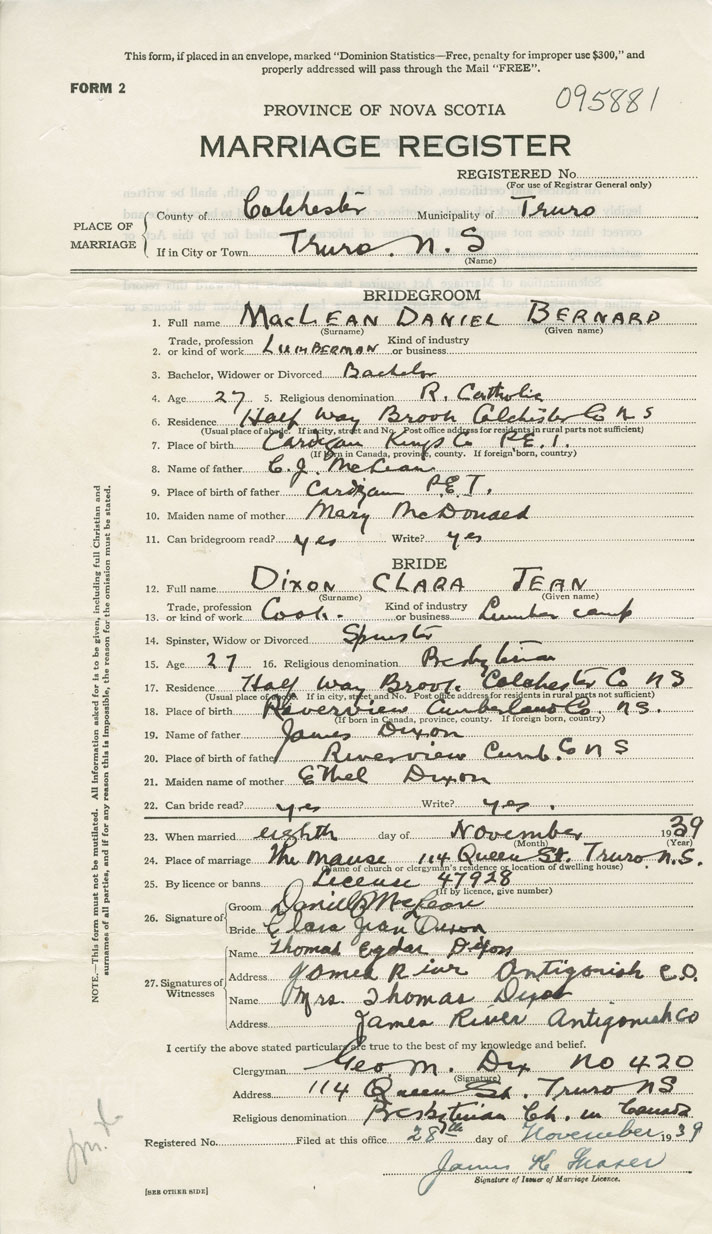 This form, if placed in an envelope, marked "Dominion Statistics—Free, penalty for improper use $300," and
properly addressed will pass through the Mail "FREE".
FORM 2
095881
PROVINCE OF NOVA SCOTIA
MARRIAGE REGISTER
REGISTERED No
(For use of Registrar General only)
PLACE OF MARRIAGE
County of Colchester Municipality of Truro
If in City or Town Truro. N. S
(Name)
BRIDEGROOM
1. Full name MacLEAN DANIEL BERNARD
(Surname) (Given name)
2. Trade, profession or kind of work LUMBERMAN Kind of industry or business
3. Bachelor, Widower or Divorced Bachelor
4. Age 27 5. Religious denomination R. Catholic
6. Residence Half Way Brook Colchester Co N S
(Usual place of abode. If in city, street and No. Post office address for residents in rural parts not sufficient)
7. Place of birth Cardigan Kings Co P.E.I.
(If born in Canada, province, county. If foreign born, country)
8. Name of father C. J. McLean
9. Place of birth of father Cardigan P.E.I.
10. Maiden name of mother Mary McDonald
11. Can bridegroom read? yes Write? yes
BRIDE
12. Full name DIXON CLARA JEAN
(Surname) (Given name)
13. Trade, profession or kind of work Cook. Kind of industry or business Lumber camp
14. Spinster, Widow or Divorced Spinster
15. Age 27 16. Religious denomination Presbyterian
17. Residence Half Way Brook. Colchester Co N S
(Usual place of abode. If in city, street and No. Post office address for residents in rural parts not sufficient)
18. Place of birth Riverview Cumberland Co. N.S.
(If born in Canada, province, county. If foreign born, country)
19. Name of father James Dixon
20. Place of birth of father Riverview Cumb. Co N S
21. Maiden name of mother Ethel Dixon
22. Can bride read? yes Write? yes.
23. When married eighth day of November 1939
(Month) (Year)
24. Place of marriage The Manse 114 Queen St. Truro N.S.
(Name of church or clergyman's residence or location of dwelling house)
25. By licence or banns License 47928
(If by licence, give number)
26. Signature of
Groom Daniel B McLean
Bride Clara Jean Dixon
27. Signatures of Witnesses
Name Thomas Egdar Dixon
Address James River Antigonish C.O.
Name Mrs. Thomas Dixon
Address James River Antigonish Co
I certify the above stated particulars are true to the best of my knowledge and belief.
Clergyman Geo. M. Dix No 420
(Signature)
Address 114 Queen St. Truro N S
Religious denomination Presbyterian Ch. in Canada
Registered No. Filed at this office 28th day of November 1939
James K Fraser
Signature of Issuer of Marriage Licence.
[SEE OTHER SIDE]
NOTE.—This form must not be mutilated. All information asked for is to be given, including full Christian and
surnames of all parties, and if for any reason this is impossible, the reason for the omission must be stated.